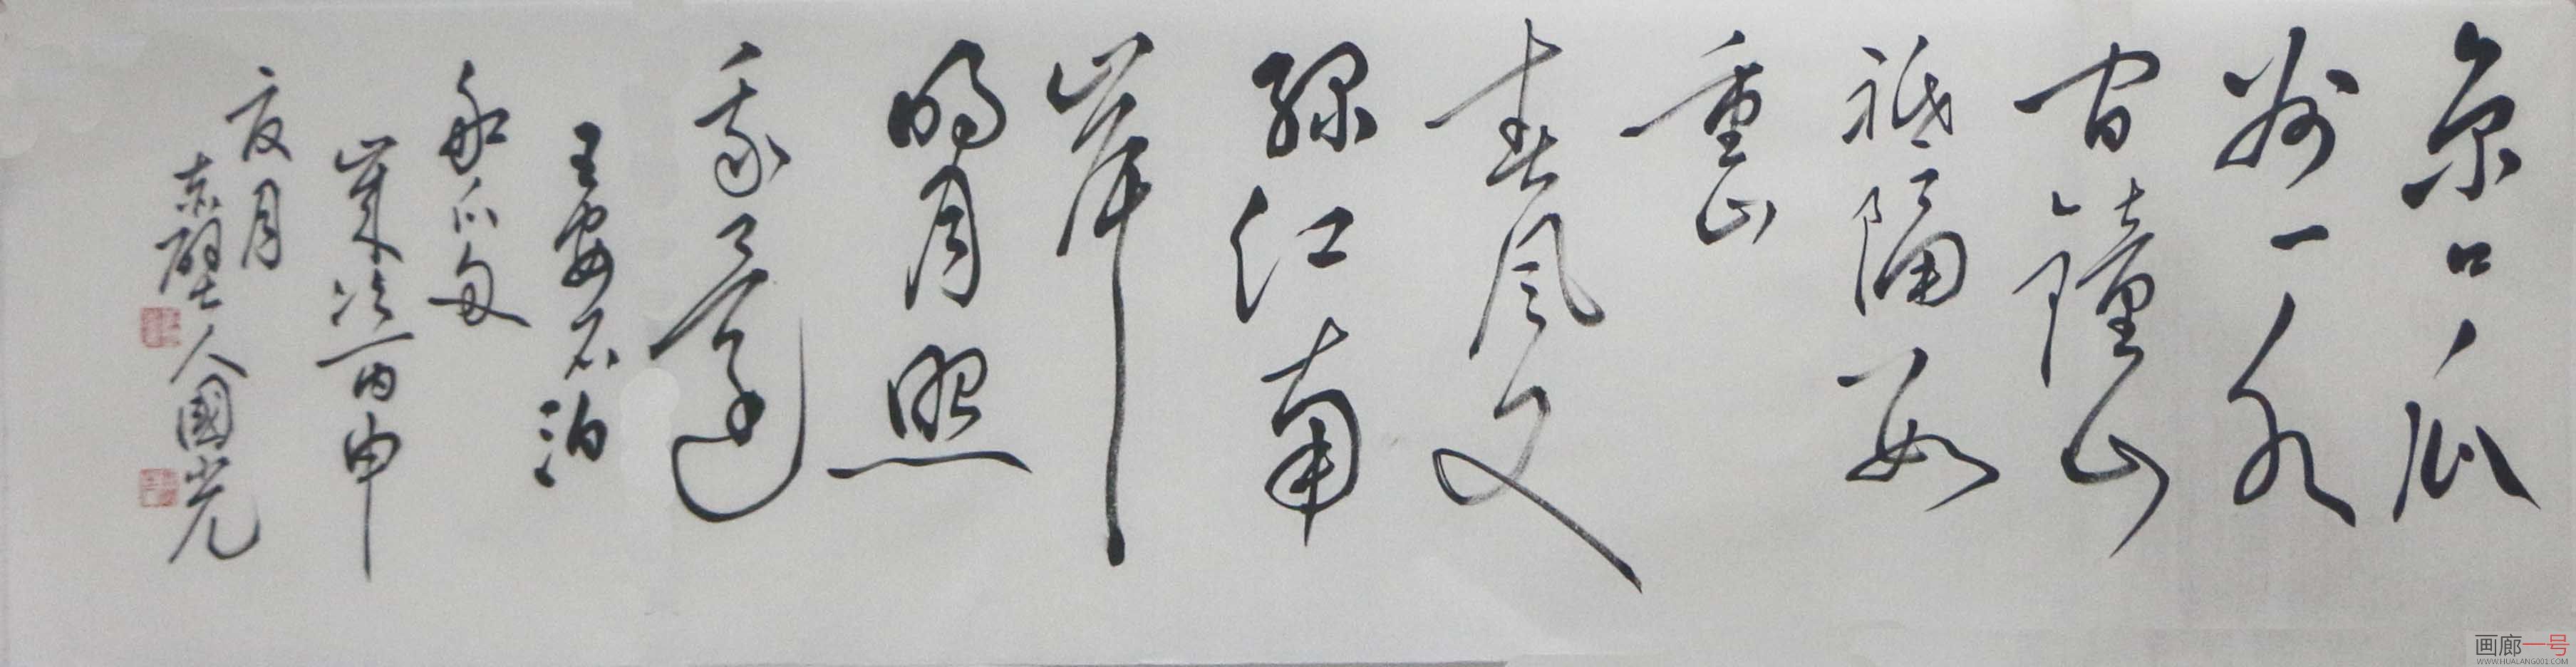 京口瓜
州一水
间鐘山
祗隔数
重山
春风又
绿江南
岸
明月照
我還
王安石泊
船瓜
歲次丙申
夏月
赤壁人國光
画廊一号
WWW.HUALANG001.COM